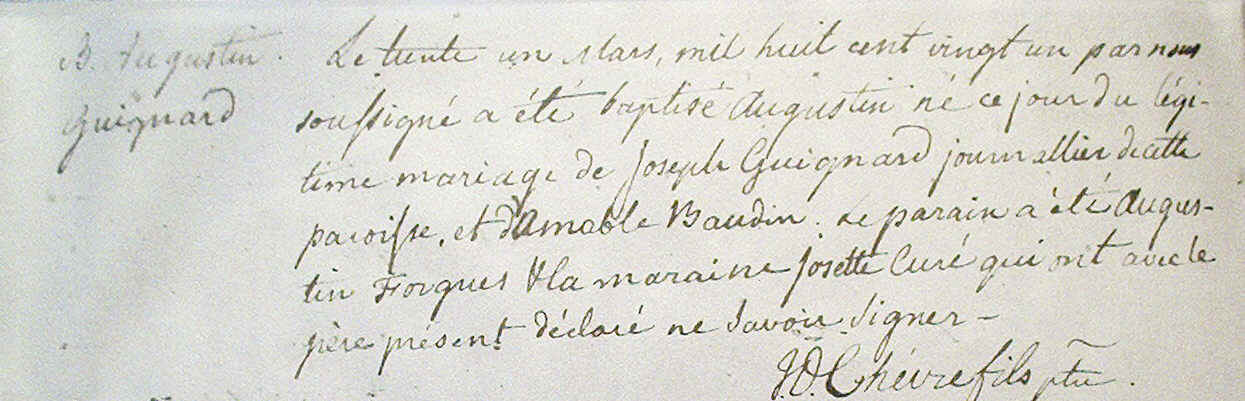 B. Augustin
Guignard
Le trente un Mars, mil huit cent vingt un par nous
soussigné a été baptisé Augustin né ce jour du légi-
time mariage de Joseph Guignard journallier de cette
paroisse, et d'Amable Baudin. Le parain a été Augus-
tin Forgues & la maraine Josette Curé qui ont avec le
père présent déclaré ne savoir signer -
J.O. Chèvrefils ptre.